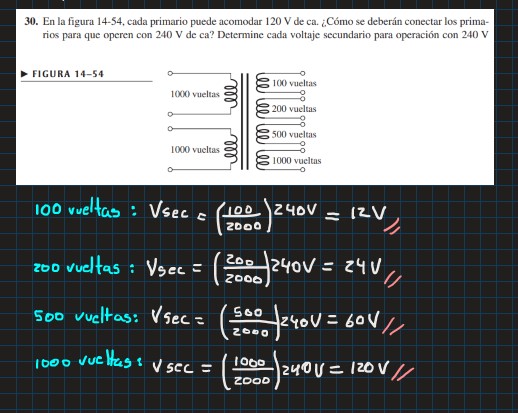 30. En la figura 14-54, cada primario puede acomodar 120 V de ca. ¿Cómo se deberán conectar los prima-
rios para que operen con 240 V de ca? Determine cada voltaje secundario para operación con 240 V
▶ FIGURA 14-54
1000 vueltas
1000 vueltas
100 vueltas
200 vueltas
500 vueltas
1000 vueltas
100 vueltas : Vsec = (100/2000)240V = 12V //
200 vueltas : Vsec = (200/2000)240V = 24V //
500 vueltas: Vsec = (500/2000)240V = 60V //
1000 vueltas: Vsec = (1000/2000)240V = 120V //